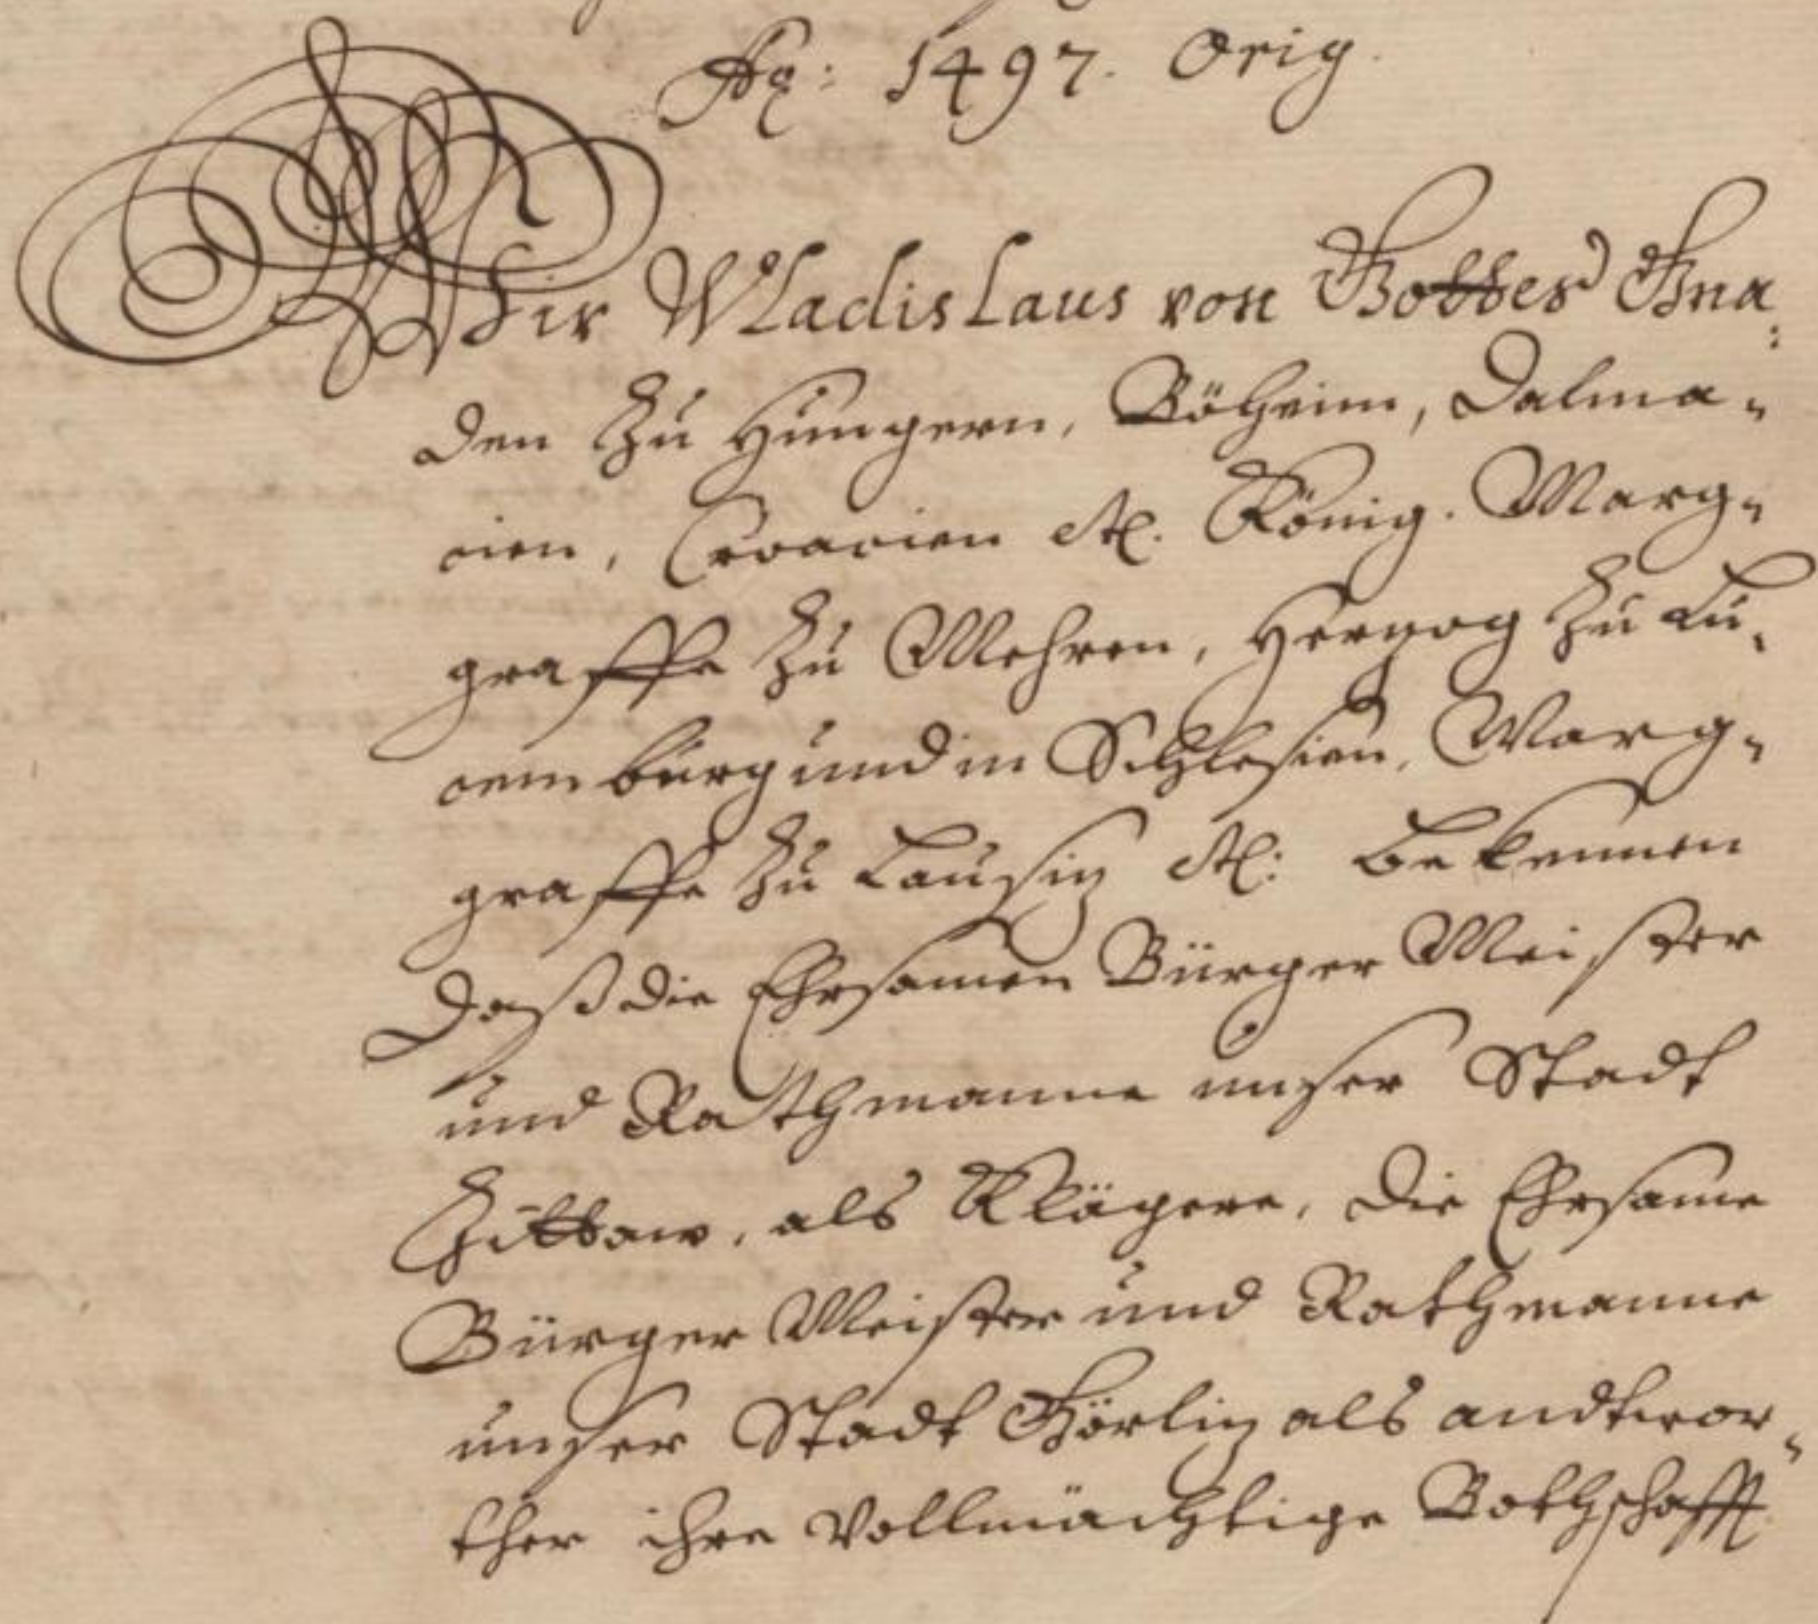 Aõ: 1497. Orig.
Wir Wladislaus von Gottes Gna:
den Zu Hungern, Böheim, Dalma-
cien, Croacien etc. König. Marg-
graffe Zu Mehren, Herzog Zu Lu-
cemburg und in Schlesien, Marg-
graffe Zu Lausiz etc: Bekennen
Daß die Ehrsamen Bürger Meister
und Rathmanne unser Stadt
Zittaw, als Klägere, die Ehrsame
Bürger Meister und Rathmanne
unser Stadt Görliz als andtwor-
ther ihre Vollmächtige Bothschafft